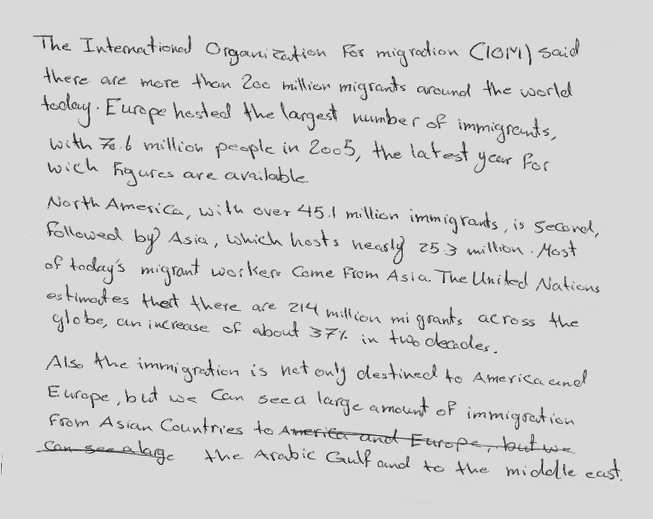 The International Organization For migration (IOM) said
there are more than 200 million migrants around the world
today. Europe hosted the largest number of immigrants,
with 70.6 million people in 2005, the latest year For
wich figures are available.
North America, with over 45.1 million immigrants, is Second,
Followed by Asia, which hosts nearly 25.3 million. Most
of today's migrant workers Come From Asia. The United Nations
estimates that there are 214 million migrants across the
globe, an increase of about 37% in two decades.
Also the immigration is not only destined to America and
Europe, but we Can see a large amount of immigration
From Asian Countries to America and Europe, but we
Can see a large the Arabic Gulf and to the middle east.